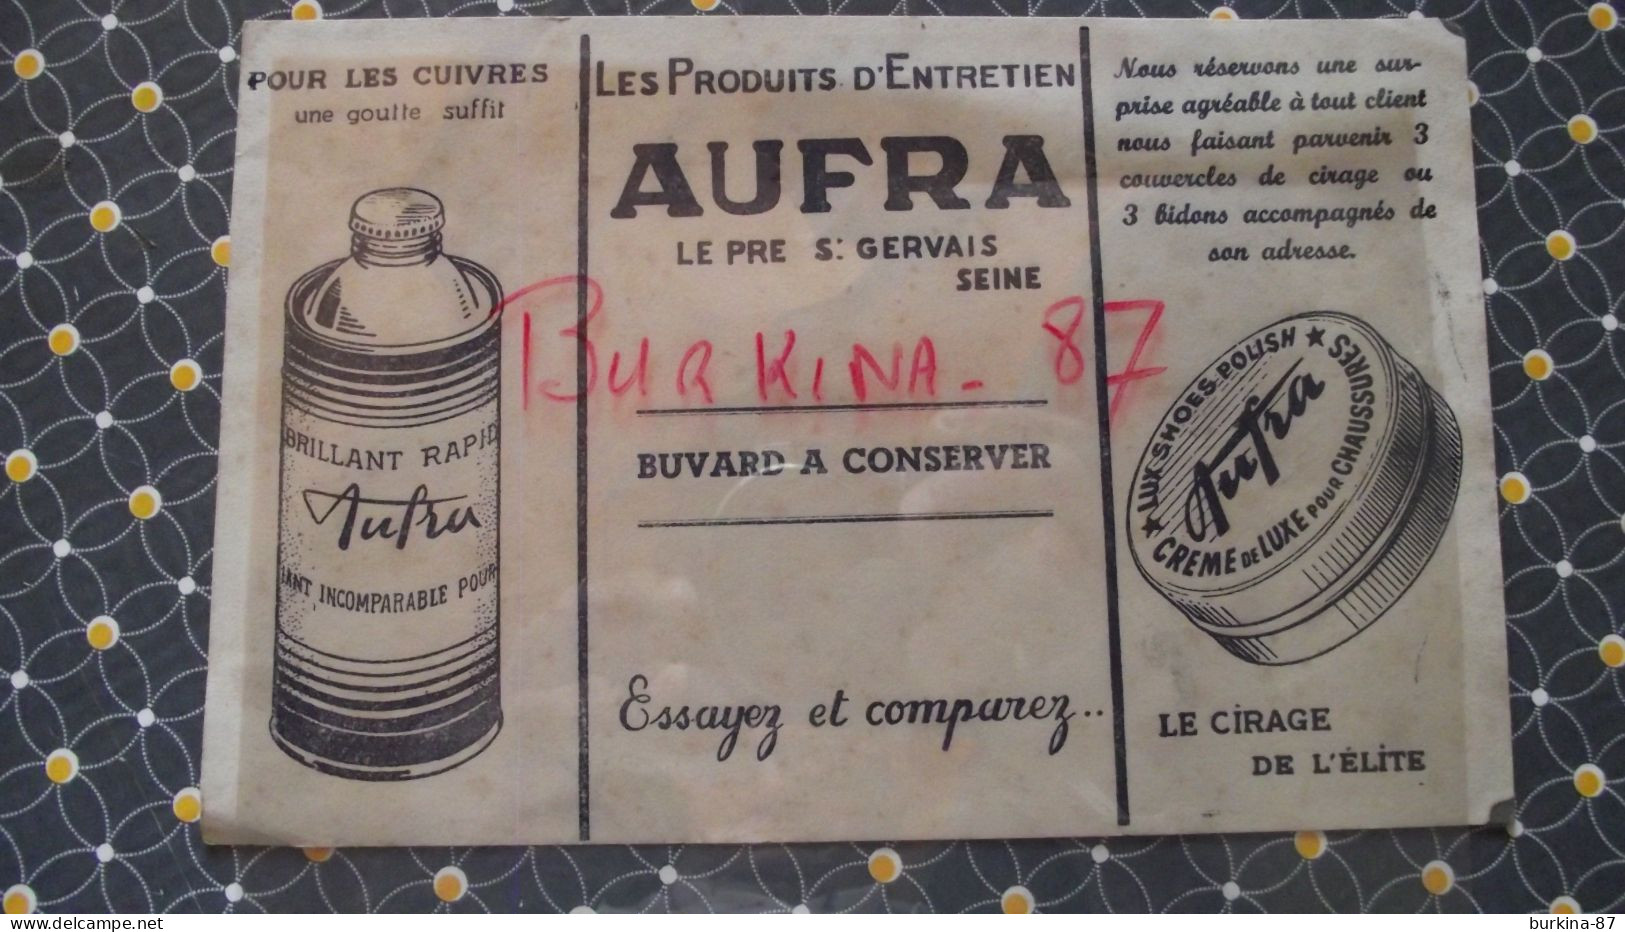 POUR LES CUIVRES
une goutte suffit
BRILLANT RAPID
Aufra
LANT INCOMPARABLE POUR
LES PRODUITS D'ENTRETIEN
AUFRA
LE PRE St GERVAIS
SEINE
BURKINA - 87
BUVARD A CONSERVER
Essayez et comparez..
Nous réservons une sur-
prise agréable à tout client
nous faisant parvenir 3
couvercles de cirage ou
3 bidons accompagnés de
son adresse.
★ LUX SHOES POLISH ★
Aufra
CREME DE LUXE POUR CHAUSSURES
LE CIRAGE
DE L'ÉLITE
burkina-87
delcampe.net